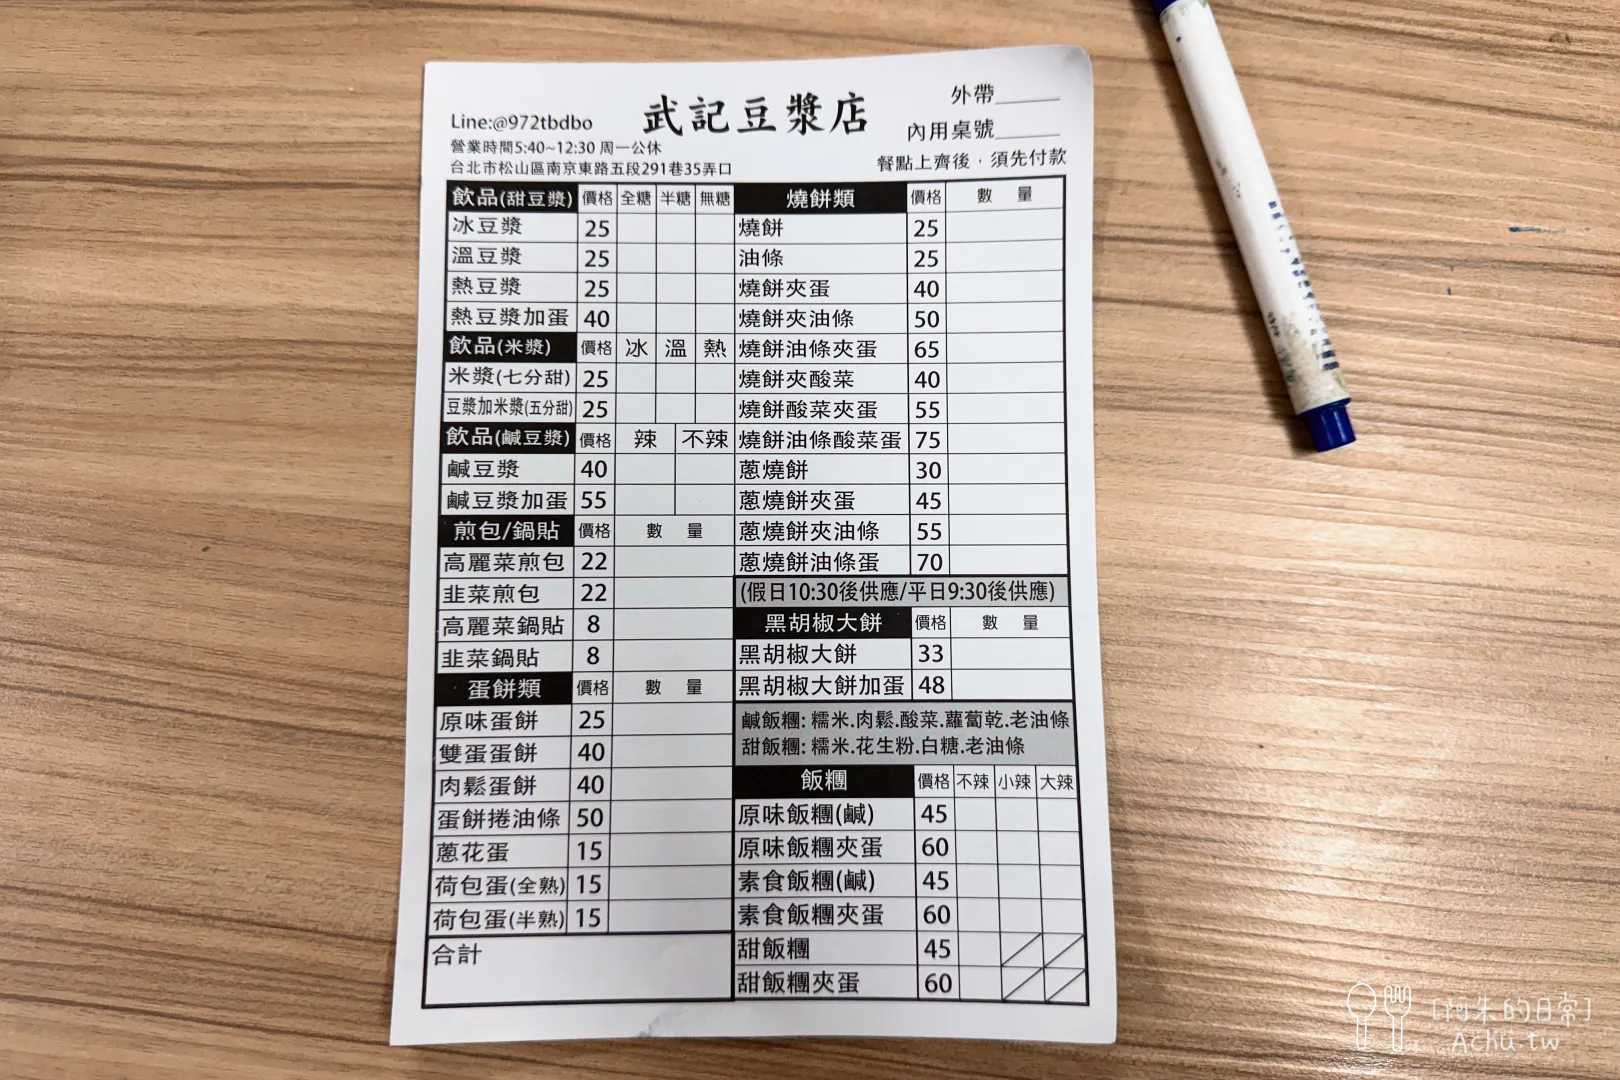 武記豆漿店
Line:@972tbdbo
營業時間5:40~12:30 周一公休
台北市松山區南京東路五段291巷35弄口
外帶
內用桌號
餐點上齊後，須先付款
飲品(甜豆漿) 價格 全糖 半糖 無糖
冰豆漿 25
溫豆漿 25
熱豆漿 25
熱豆漿加蛋 40
飲品(米漿) 價格 冰 溫 熱
米漿(七分甜) 25
豆漿加米漿(五分甜) 25
飲品(鹹豆漿) 價格 辣 不辣
鹹豆漿 40
鹹豆漿加蛋 55
煎包/鍋貼 價格 數量
高麗菜煎包 22
韭菜煎包 22
高麗菜鍋貼 8
韭菜鍋貼 8
蛋餅類 價格 數量
原味蛋餅 25
雙蛋蛋餅 40
肉鬆蛋餅 40
蛋餅捲油條 50
蔥花蛋 15
荷包蛋(全熟) 15
荷包蛋(半熟) 15
合計
燒餅類 價格 數量
燒餅 25
油條 25
燒餅夾蛋 40
燒餅夾油條 50
燒餅油條夾蛋 65
燒餅夾酸菜 40
燒餅酸菜夾蛋 55
燒餅油條酸菜蛋 75
蔥燒餅 30
蔥燒餅夾蛋 45
蔥燒餅夾油條 55
蔥燒餅油條蛋 70
(假日10:30後供應/平日9:30後供應)
黑胡椒大餅 價格 數量
黑胡椒大餅 33
黑胡椒大餅加蛋 48
鹹飯糰: 糯米.肉鬆.酸菜.蘿蔔乾.老油條
甜飯糰: 糯米.花生粉.白糖.老油條
飯糰 價格 不辣 小辣 大辣
原味飯糰(鹹) 45
原味飯糰夾蛋 60
素食飯糰(鹹) 45
素食飯糰夾蛋 60
甜飯糰 45
甜飯糰夾蛋 60
[阿朱的日常]
Achu.tw